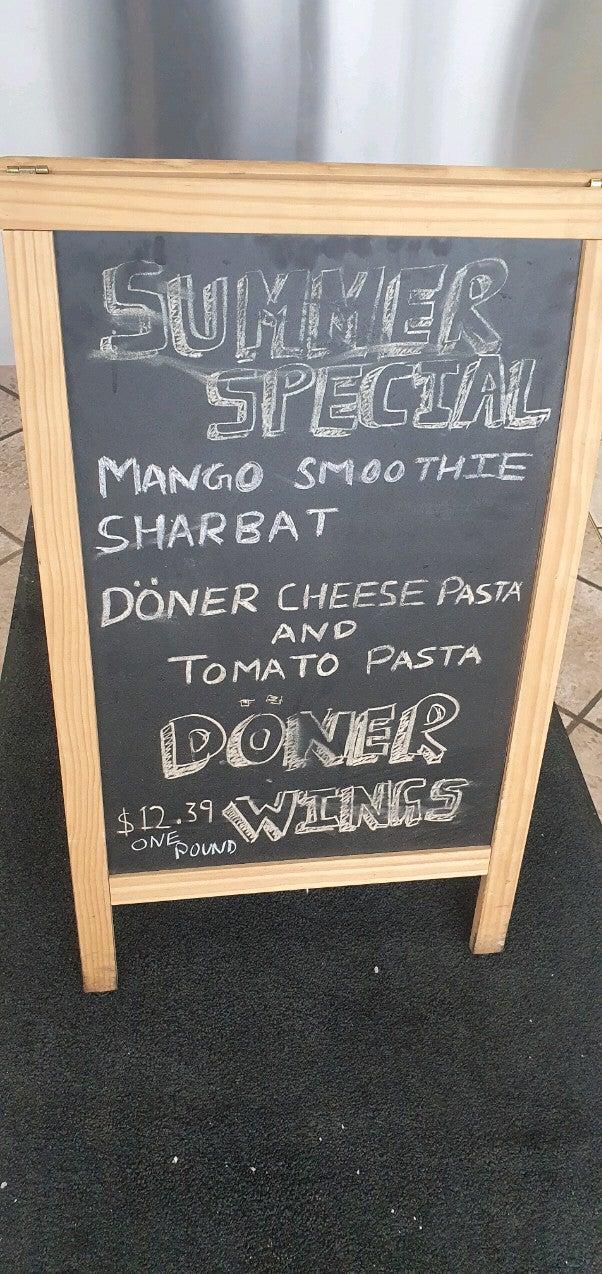 SUMMER
SPECIAL
MANGO SMOOTHIE
SHARBAT
DÖNER CHEESE PASTA
AND
TOMATO PASTA
DÖNER
WINGS
$12.39
ONE
POUND